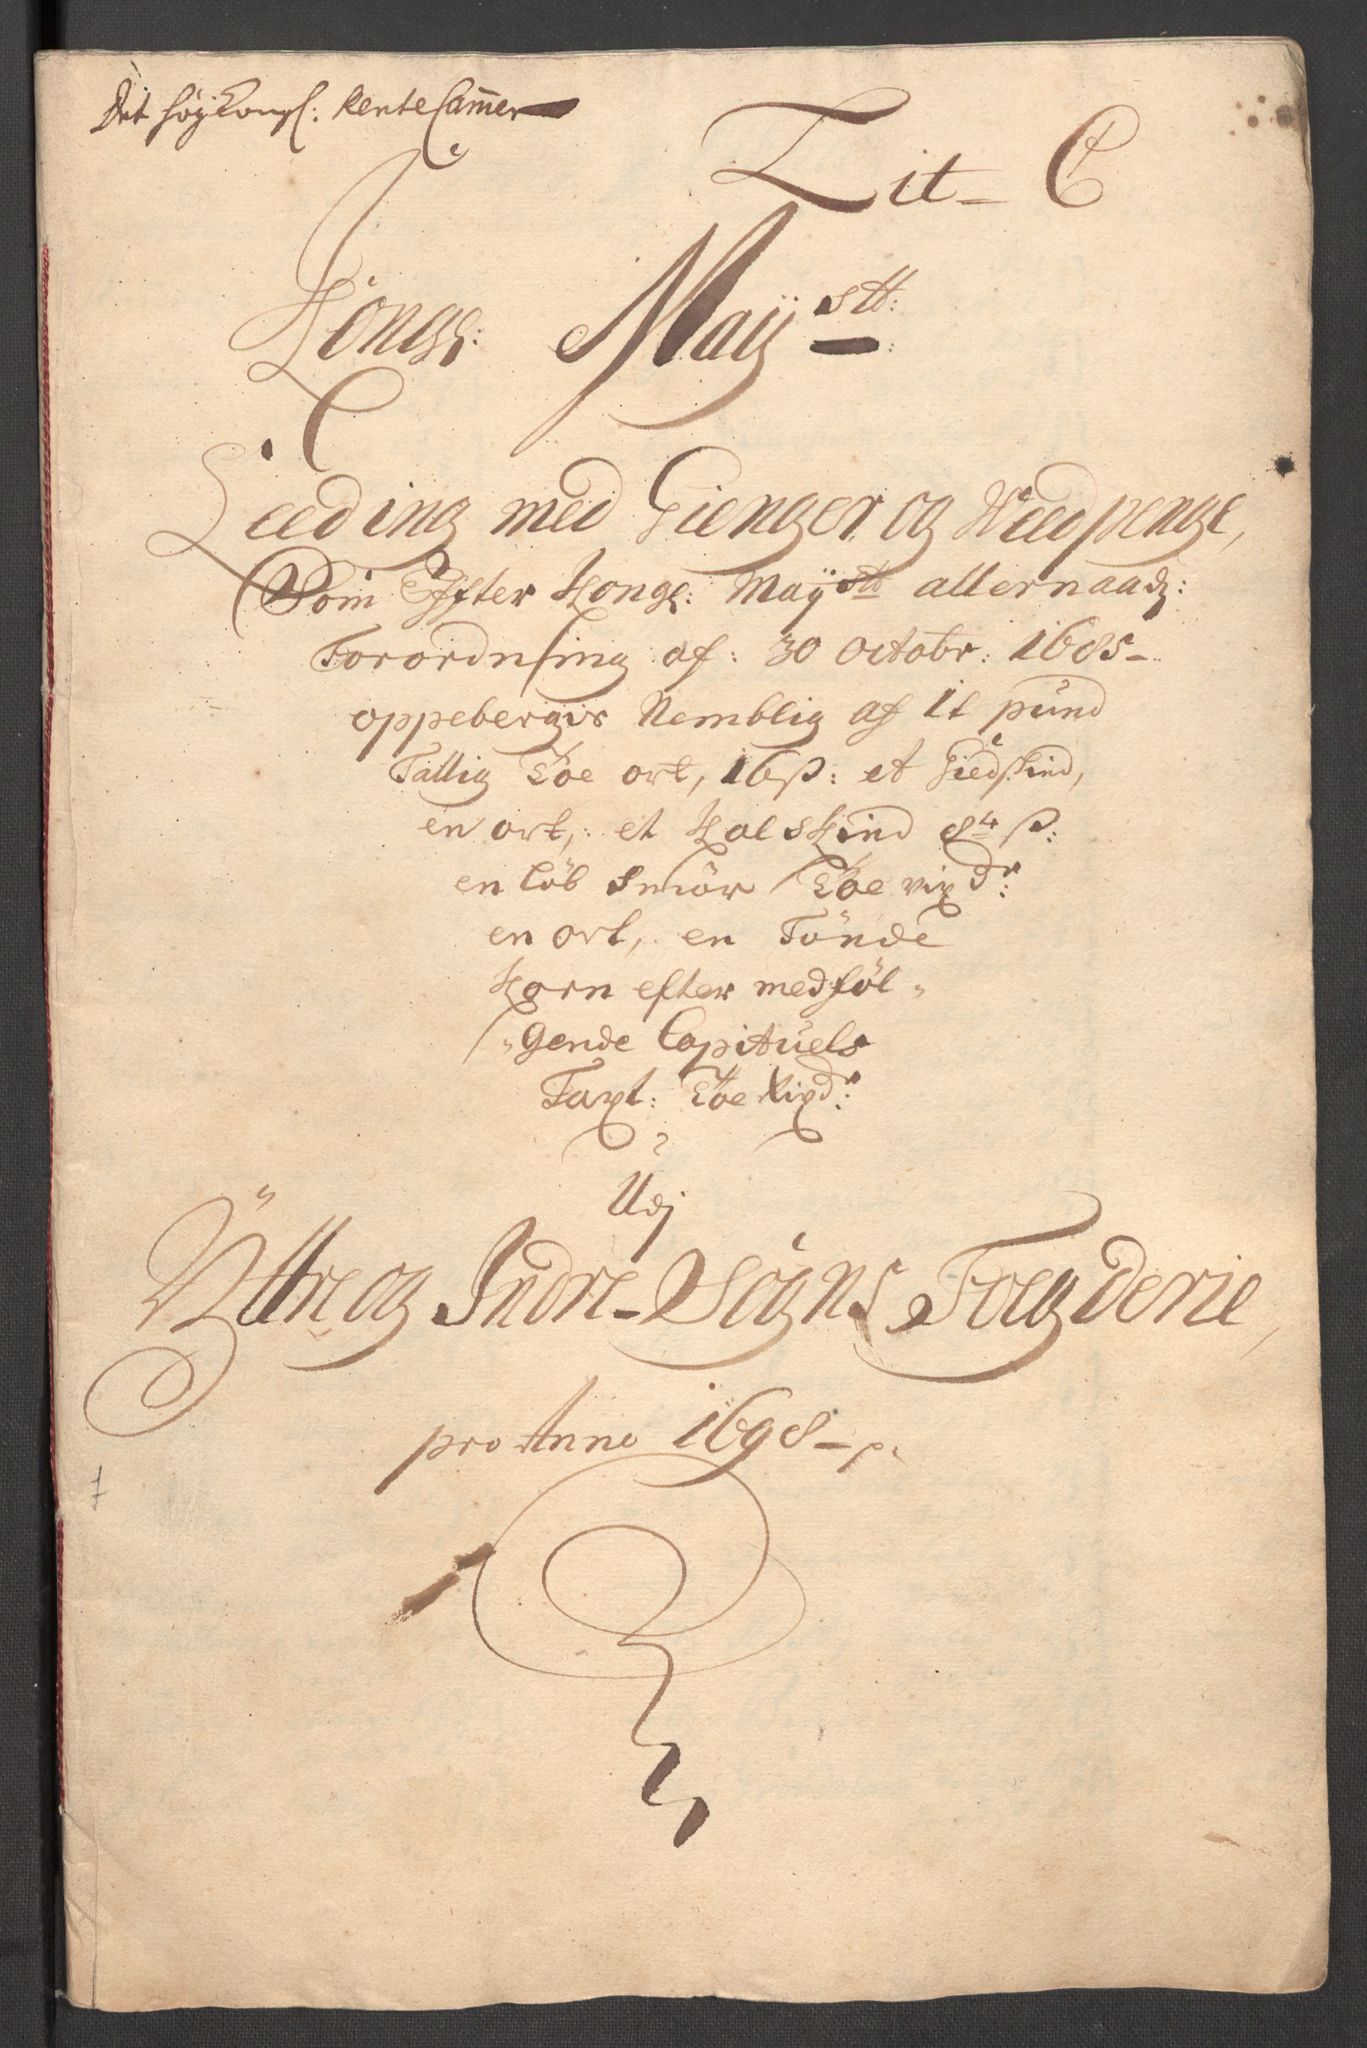 Det høy Kongl: Rente Cammer
Lit- C
Kongl: Maÿstt:
Leeding med Gienger og Weedpenge,
Som Effter Kongl: Maÿstt allernaadg:
Forordnsing af: 30 Octobr: 1685-
oppebergis Nemblig af It pund
Tallig Toe ort, 16 ß: et Giedskind,
en ort, et Kalskind 8 ß:
en løb Smør Toe rixdr:
en ort, en Tønde
Korn efter medføl-
gende Capituels
Taxt: Toe Rixdr:
Udj
Ÿttre og Indre Sogns Foegderie,
pro Anno 1698-